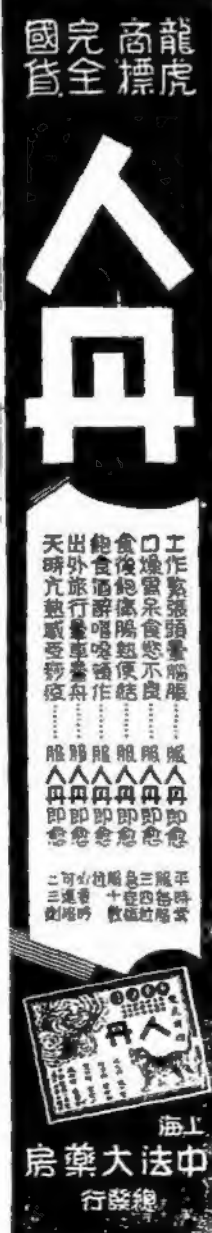 龍虎
商標
完全
國貨
人丹
工作緊張頭暈腦脹……服人丹即愈
口燥胃呆食慾不良……服人丹即愈
食後飽痛腸熱便結……服人丹即愈
飽食酒醉嘔噦頓作……服人丹即愈
出外旅行暈車暈舟……服人丹即愈
天時亢熱感受痧疫……服人丹即愈
平時常
服每服
三四粒
急症磕
服十數
粒
人丹
上海
中法大藥房
總發行